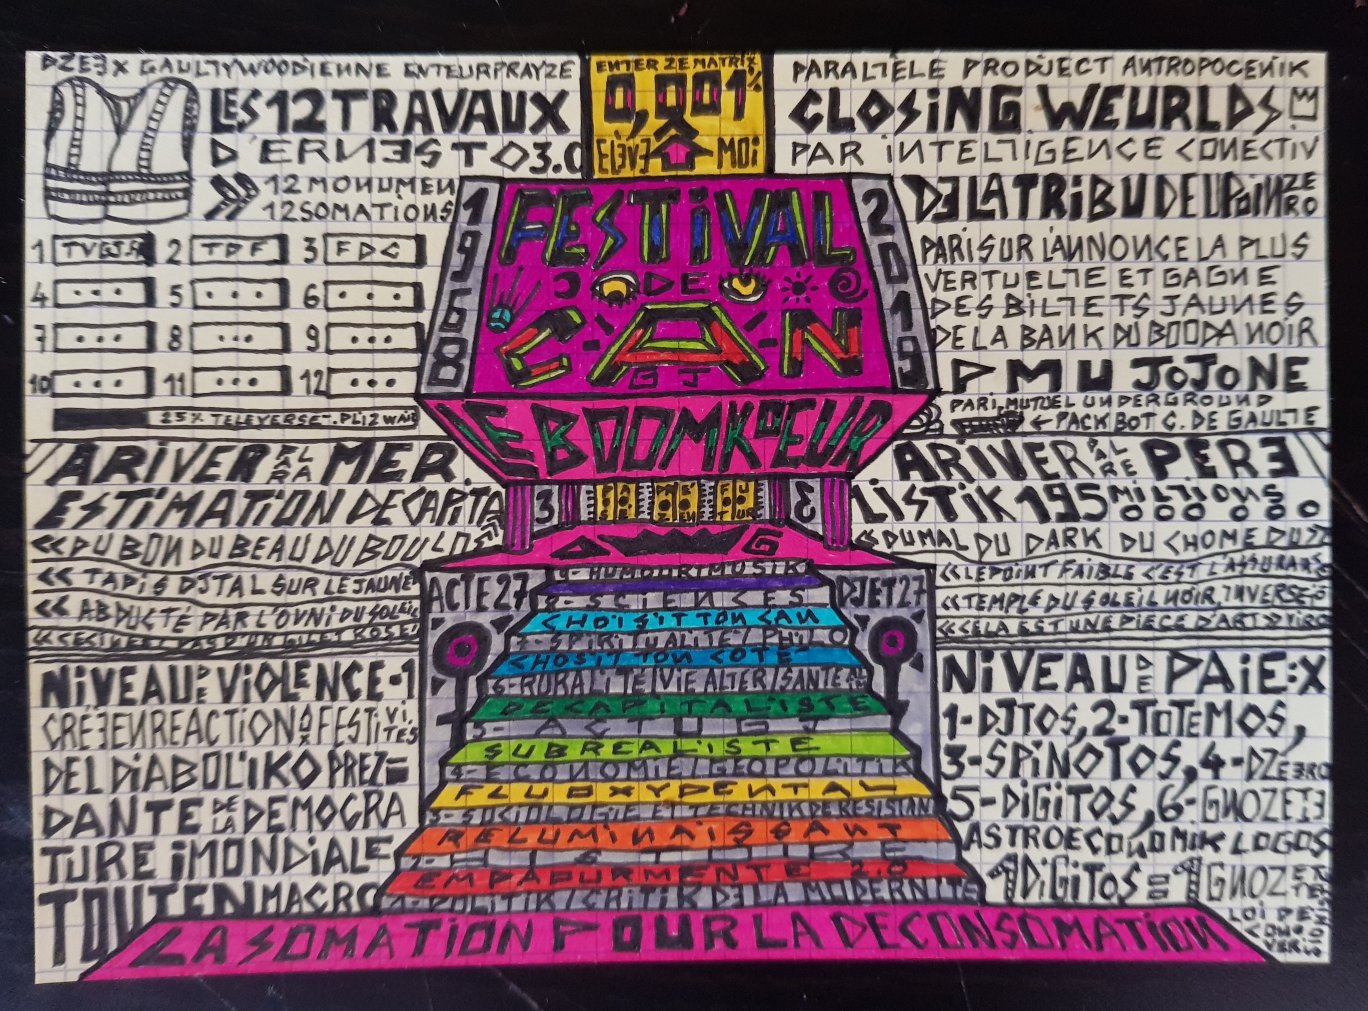 DZEEX GAULTYWOODIENNE ENTEURPRAYZE
LES 12 TRAVAUX
D'ERNESTO 3.0
12 MONUMEN
12 SOMATIONS
1 TVGJ.R 2 TDF 3 FDC
4 ... 5 ... 6 ...
7 ... 8 ... 9 ...
10 ... 11 ... 12 ...
25% TELEVERSET. PLIZ WAIT
ENTER ZE MATRIX
0,001%
ELEVE MOI
PARALTELE PRODJECT ANTROPOCENIK
CLOSING WEURLDS
PAR INTELTIGENCE CONECTIV
DE LA TRIBU DEUPOINZERO
PARI SUR L'ANNONCE LA PLUS
VERTUELTE ET GAGNE
DES BILTETS JAUNES
DE LA BANK DU BOODA NOIR
PMU JOJONE
PARI MUTUEL UNDERGROUND
← PACKBOT C. DE GAULTE
1968
FESTIVAL
DE
CAN
GJ
2019
LE BOOMKOEUR
3 3
ARIVER PAR LA MER
ESTIMATION DECAPITA
« DU BON DU BEAU DU BOULO
« TAPIS DJTAL SUR LE JAUNE
« ABDUCTÉ PAR L'OVNI DU SOLEIL
« CECI N'EST PAS D'UN GILET ROSE
ARIVER PAR LE PERE
LISTIK 195 MILTIONS
« DU MAL DU DARK DU CHOME DU »
« LE POINT FAIBLE C'EST L'ASSURANCE
« TEMPLE DU SOLEIL NOIR, INVERSE
« CELA EST UNE PIECE D'ART »
ACTE 27
DJET 27
9-HUMOUR TMOSTIK
8-SCIENCES
CHOISIT TON CAN
7-SPIRITUALITE/PHILO
CHOSIT TON COTE
6-RURALITE VIE ALTER/SANTE
DECAPITALISTE
5-ACTU GJ
SUBREALISTE
4-ECONOMIE/GEOPOLITIK
FLUOXYDENTAL
3-SOCIOLOGIE ET TECHNIK DE RESISTAN
RELUMINAISSANT
2-HISTOIRE
EMPAPURMENTE 2.0
1-POLITIK/CRITIK DE LA MODERNITE
LA SOMATION POUR LA DECONSOMATION
NIVEAU DE VIOLENCE-1
CRÉE EN REACTION AX FESTIVITÉS
DEL DIABOLIKO PREZI=
DANTE DE LA DEMOCRA
TURE IMONDIALE
TOUTEN MACRO
NIVEAU DE PAIE:X
1-DJTOS, 2-TOTEMOS,
3-SPINOTOS, 4-DZEERO
5-DIGITOS, 6-GNOZETE
ASTROECONOMIK LOGOS
1 DIGITOS = 1 GNOZETE
LOI DES